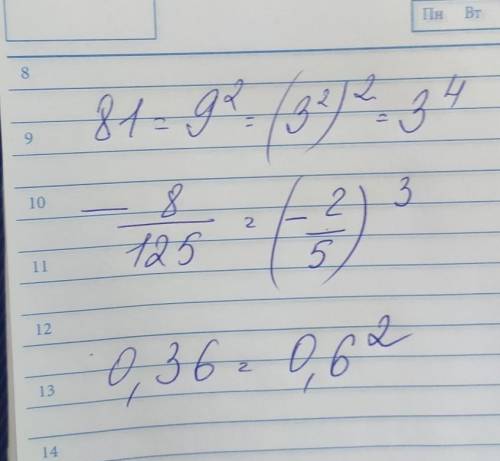 Пн Вт
8
81 = 9² = (3²)² = 3⁴
9
10
- 8/125 = (- 2/5)³
11
12
0,36 = 0,6²
13
14